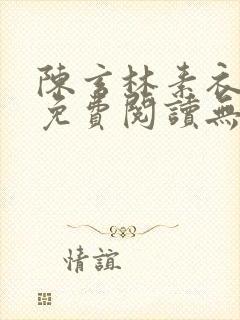 陳言林素衣
免費閱讀無
情誼